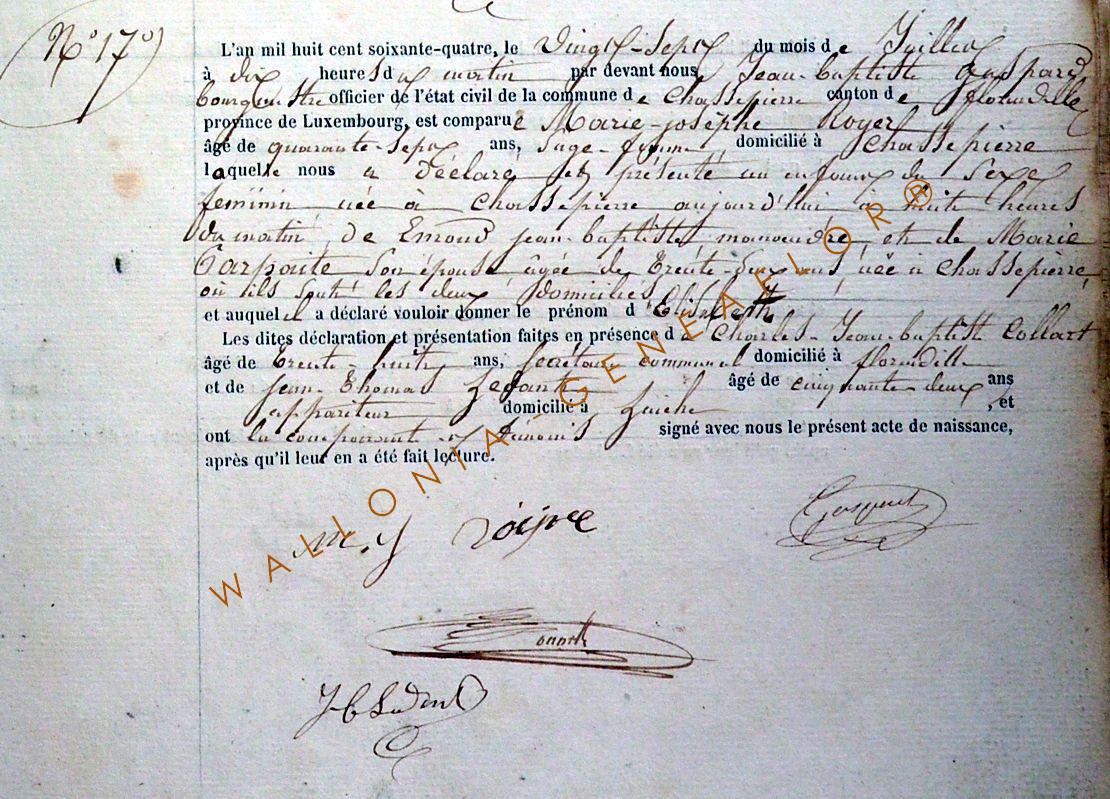 N° 17°)
L'an mil huit cent soixante-quatre, le vingt-sept du mois de Juillet
à dix heures du matin par devant nous Jean-baptiste Gaspard
bourgmestre officier de l'état civil de la commune de Chassepierre canton de florenville
province de Luxembourg, est comparue Marie-josèphe Royer
âgé de quarante-sept ans, sage-femme domicilié à Chassepierre
laquelle nous a déclaré et présenté un enfant du sexe
féminin née à Chassepierre aujourd'hui à huit heures
du matin, de Emond jean-baptiste, manoeuvre, et de Marie
son épouse âgée de trente-deux ans, née à Chassepierre,
où ils sont les deux domiciliés
et auquel il a déclaré vouloir donner le prénom d'Elisabeth
Les dites déclaration et présentation faites en présence de Charles-Jean-baptiste Collart
âgé de trente-huit ans, secrétaire communal domicilié à florenville
et de jean-Thomas âgé de cinquante deux ans
appariteur domicilié à Laiche , et
ont la comparante et témoins signé avec nous le présent acte de naissance,
après qu'il leur en a été fait lecture.
m. j
Gaspard
WALLONIA GENEAFLOR®